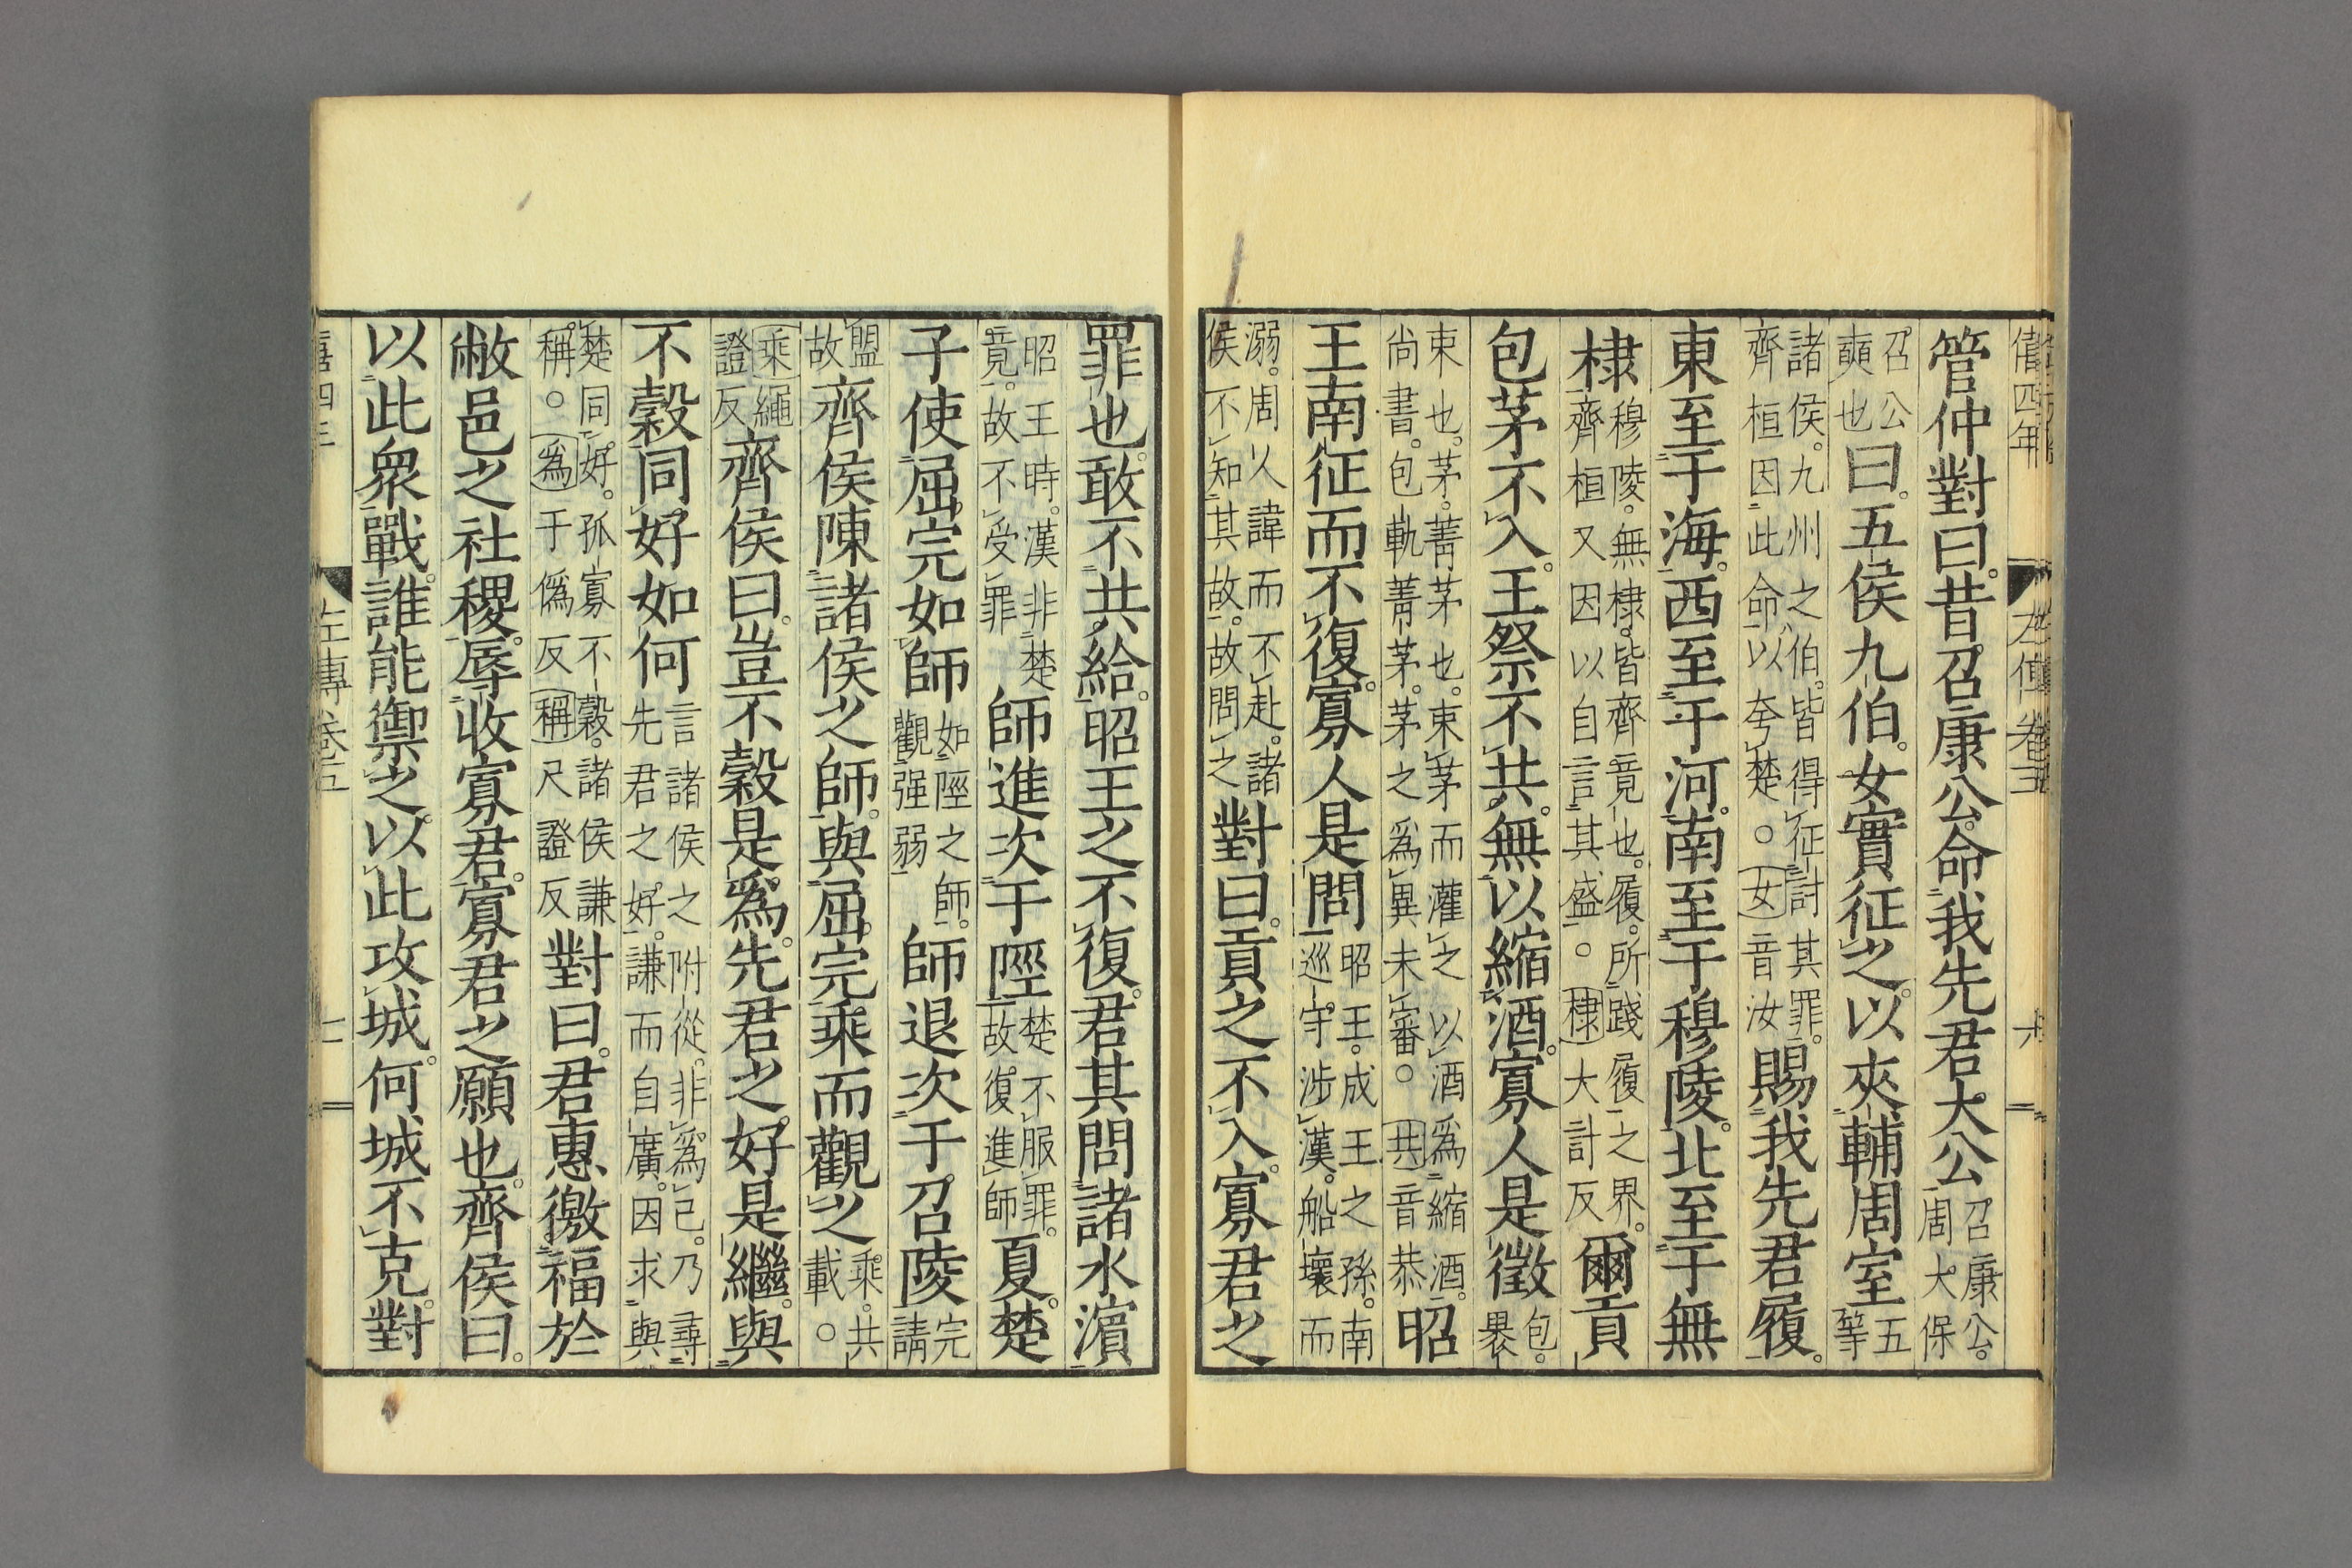 僖四年 左傳卷五 六
管仲對曰。昔召康公。命我先君大公召康公。周大保
召公奭也曰。五侯九伯。女實征之。以夾輔周室五等
諸侯。九州之伯。皆得征討其罪。齊桓因此命以夸楚。○女音汝賜我先君履。
東至于海。西至于河。南至于穆陵。北至于無
棣穆陵。無棣。皆齊竟也。履。所踐履之界。齊桓又因以自言其盛。○棣大計反爾貢
包茅不入。王祭不共。無以縮酒。寡人是徵包。褁
束也。茅。菁茅也。束茅而灌之以酒爲縮酒。尚書。包軌菁茅。茅之爲異未審。○共音恭昭
王南征而不復。寡人是問昭王。成王之孫。南巡守涉漢。船壞而
溺。周人諱而不赴。諸侯不知其故。故問之對曰。貢之不入。寡君之
罪也。敢不共給。昭王之不復。君其問諸水濱
昭王時。漢非楚竟。故不受罪師進次于陘楚不服罪。故復進師夏。楚
子使屈完如師如陘之師。觀强弱師退次于召陵完請
盟故齊侯陳諸侯之師。與屈完乘而觀之乘。共載。○
乘繩證反齊侯曰。豈不穀是爲。先君之好是繼。與
不穀同好如何言諸侯之附從。非爲己。乃尋先君之好。謙而自廣。因求與
楚同好。孤寡不穀。諸侯謙稱。○爲于僞反稱尺證反對曰。君惠徼福於
敝邑之社稷。辱收寡君。寡君之願也。齊侯曰。
以此衆戰。誰能禦之。以此攻城。何城不克。對
僖四年 左傳卷五